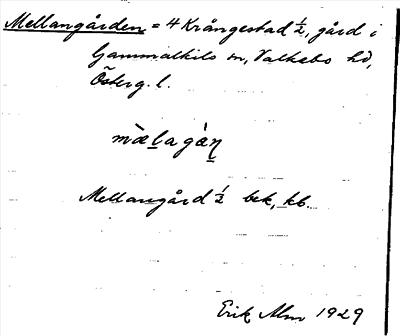 Mellangården = 4 Krångestad ½, gård i
Gammalkils sn, Valkebo hd,
Österg. l.
mæ̀lagæ̀ṇ
Mellangård ½ bek, kb.
Erik Alm 1929